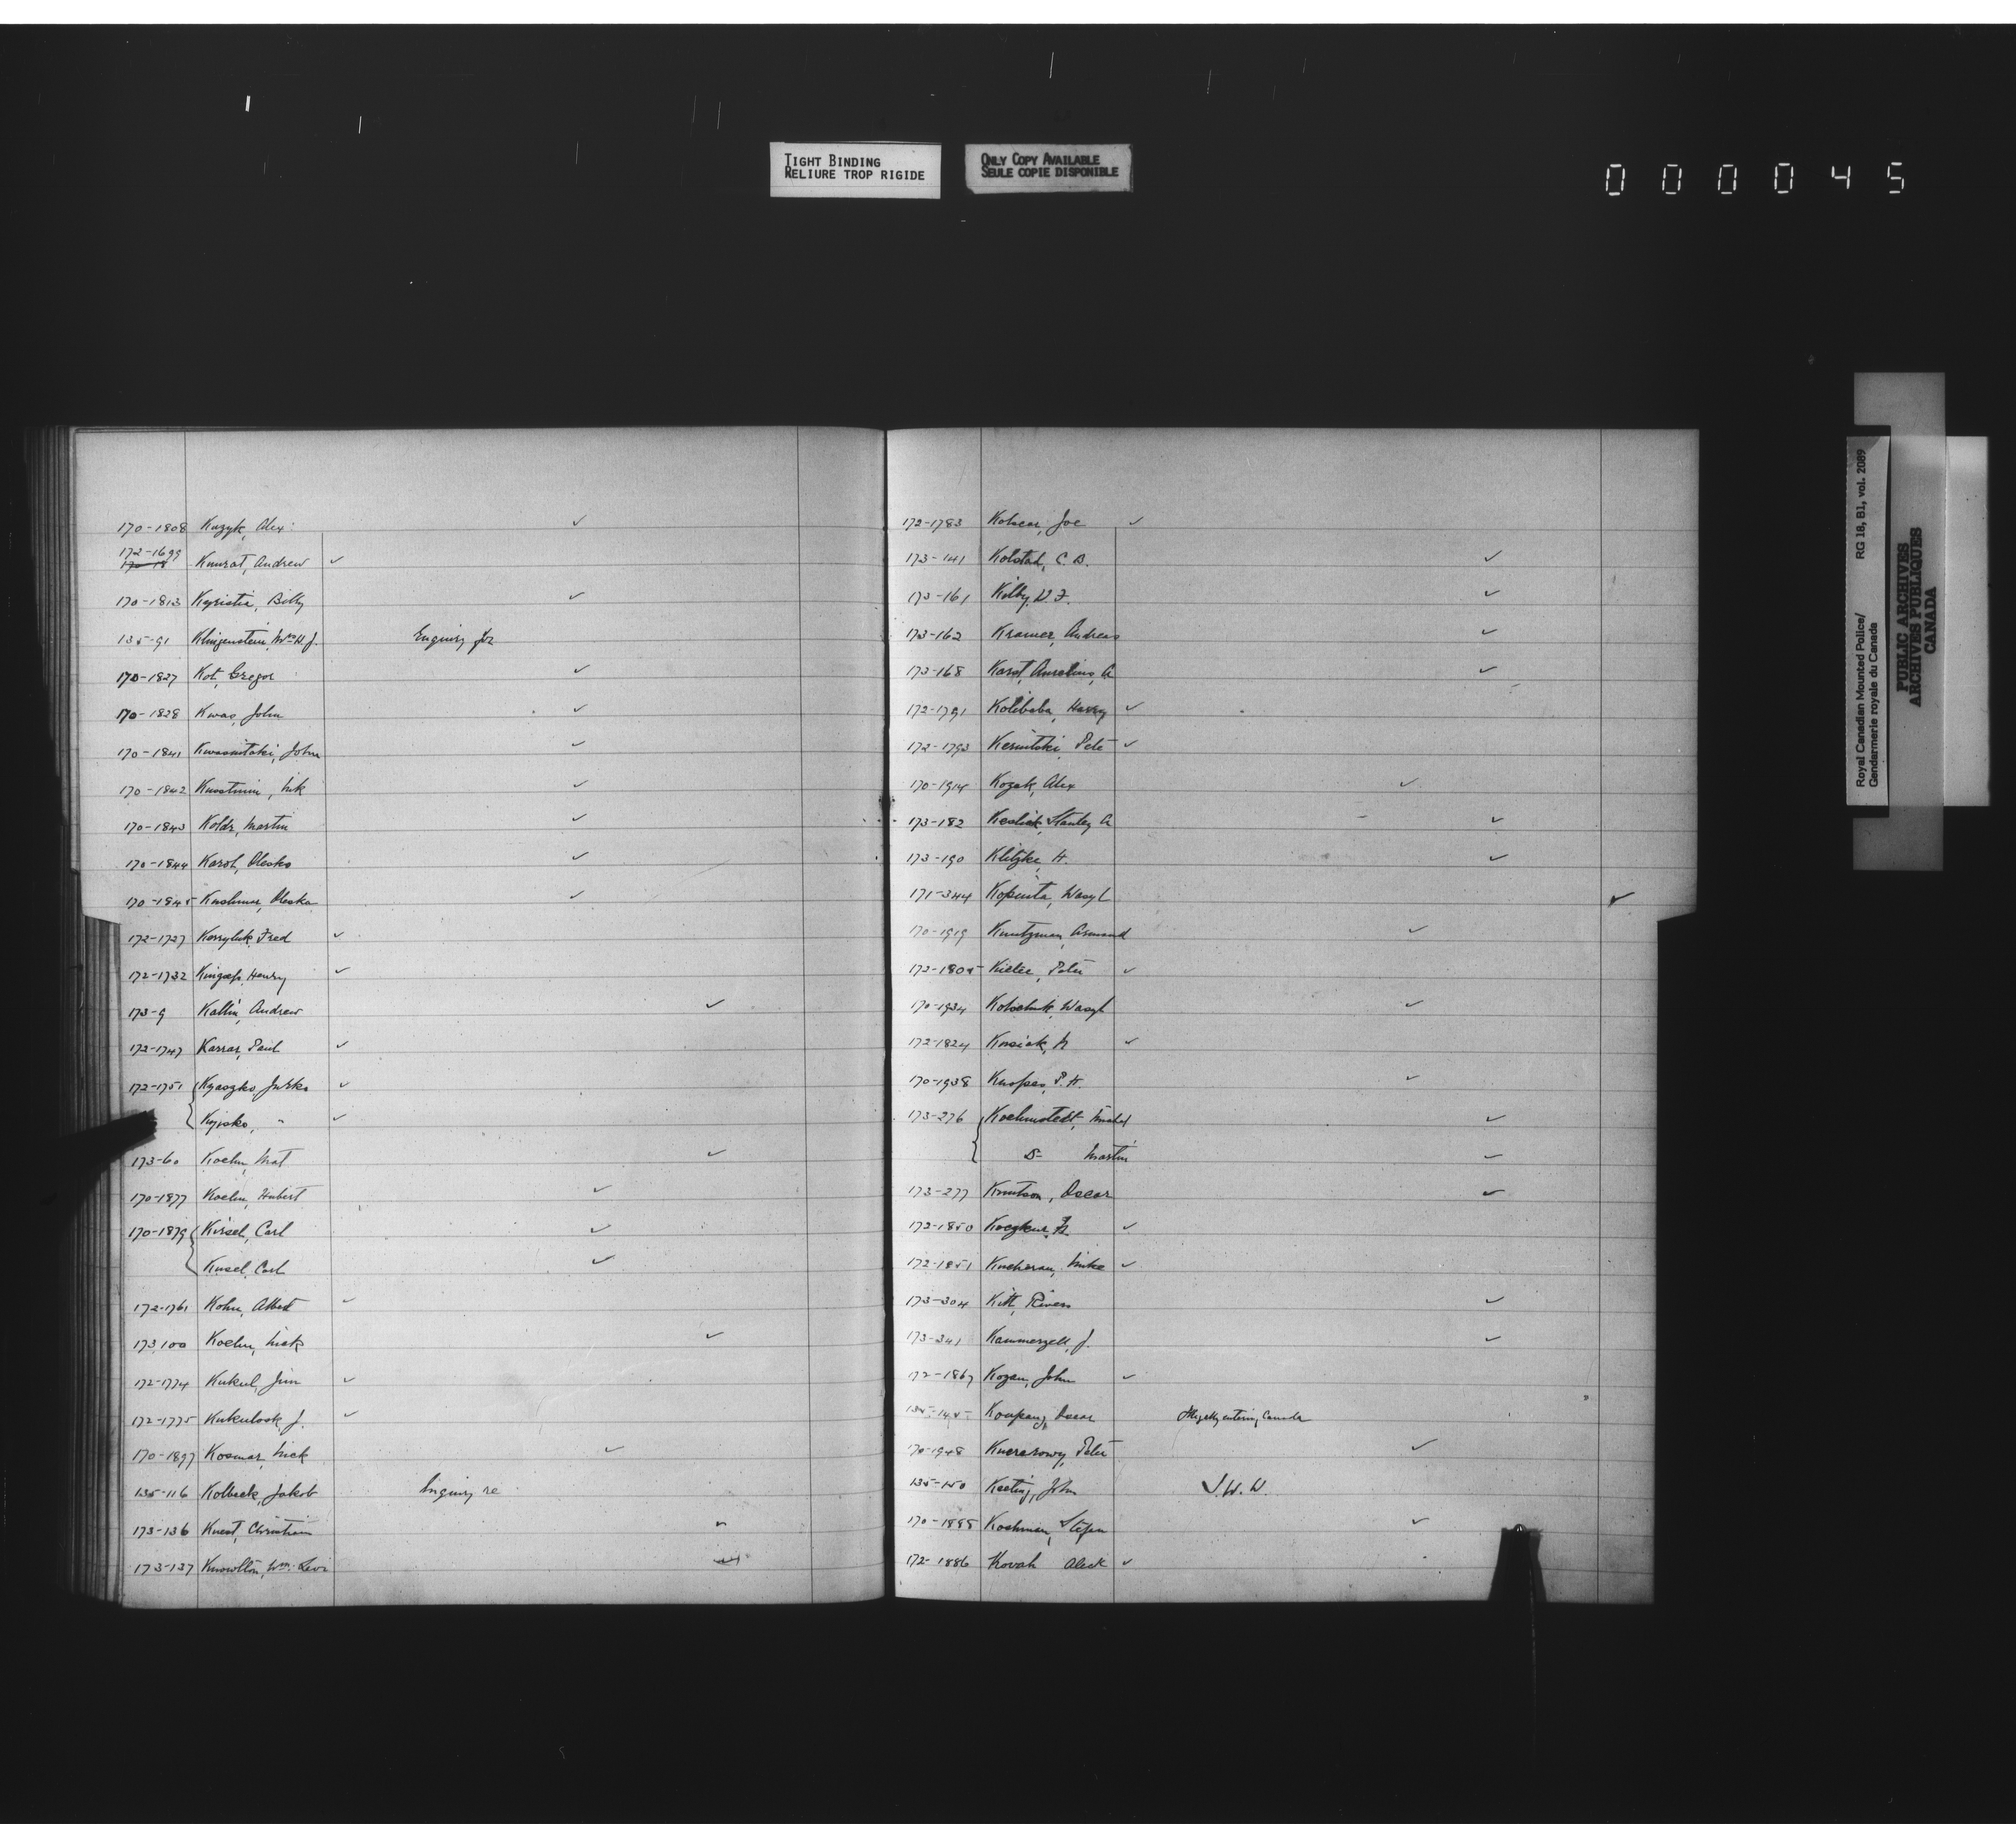 TIGHT BINDING
RELIURE TROP RIGIDE
ONLY COPY AVAILABLE
SEULE COPIE DISPONIBLE
000045
170-1808 Kuzyk, Alex
172-1699
Knurat, Andrew ✓
170-1813 Kyristia, Billy ✓
135-91 Klingenstein, Wm H. J. Enquiry for
170-1827 Kot, Gregor ✓
170-1828 Kwas, John ✓
170-1841 John ✓
170-1842 Nik ✓
170-1843 Koldz, Martin ✓
170-1844 Karol, Olesko ✓
170-1845 Kushmar, Oleska ✓
172-1727 Korryluk, Fred ✓
172-1732 Henry ✓
173-9 Kallin, Andrew ✓
172-1747 Karras, Paul ✓
172-1751 Kyaszko, Jurko ✓
Kyisko, " ✓
173-60 Koehn, Mat ✓
170-1877 Koehn, Hubert ✓
170-1879 Kirsel, Carl ✓
Kusel, Carl ✓
172-1761 Kohn, Albert ✓
173 100 Koehn, Nick ✓
172-1774 Kukul, Jim ✓
172-1775 Kukulook, J. ✓
170-1897 Kosmar, Nick ✓
135-116 Kolbeck, Jakob Inquiry re
173-136 Kuest, Christian
173-137 Knowlton, Wm. Levi
172-1783 Joe ✓
173-141 Kolstad, C. B. ✓
173-161 Kilby, W. F. ✓
173-162 Kramer, Andreas ✓
173-168 Karst, Anselmus, A ✓
172-1791 Kolibaba, Harry ✓
172-1793 Pete ✓
170-1914 Kozak, Alex ✓
173-182 Stanley A ✓
173-190 Klitzke, H. ✓
171-344 Wasyl ✓
170-1919 Kuntzman, Armand ✓
172-1805 Kielec, Peter ✓
170-1934 Wasyl ✓
172-1824 Kosiak, N ✓
170-1938 P. H. ✓
173-276 Koehmstedt, Mabel ✓
Do Martin ✓
173-277 Knutson, Oscar ✓
172-1850 ✓
172-1851 Kucheran, Mike ✓
173-304 Kitt, Rivers ✓
173-341 Kammerzell, J. ✓
172-1867 Kozan, John ✓
Oscar Illegally entering Canada
170-1948 Peter ✓
135-150 Keeting, John I. W. W.
Koshman, Stefan ✓
172-1886 Kovah Aleck ✓
Royal Canadian Mounted Police/ RG 18, B1, vol. 2089
Gendarmerie royale du Canada
PUBLIC ARCHIVES
ARCHIVES PUBLIQUES
CANADA